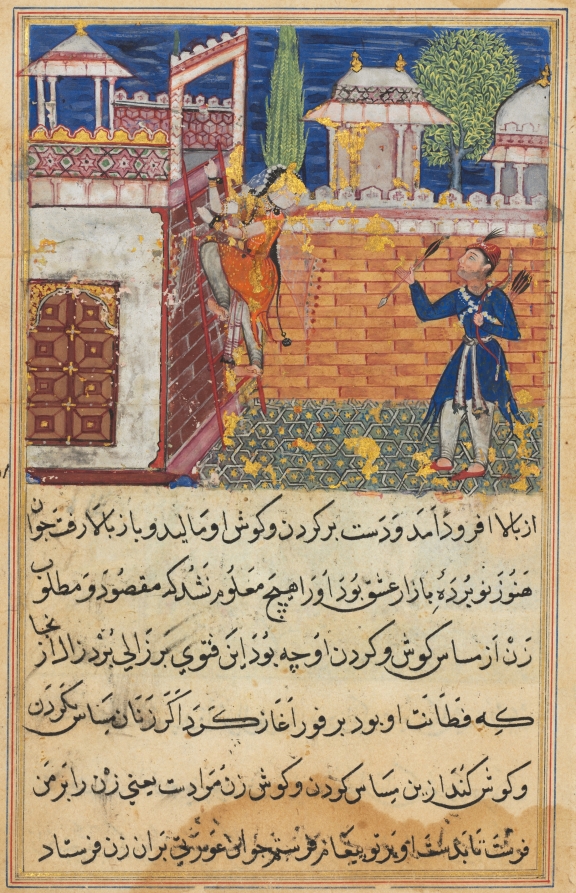 از بالا افرود آمد و دست بر کردن و کوش او مالید و باز بالا رفت جوان
هنوز نو بردهٔ بازار عشق بود او را هیچ معلوم نشد که مقصود و مطلوب
زن از مساس کوش و کردن او چه بود این فتوی بر زالی برد زال از
نجا
که فطانت او بود بر فور آغاز کرد اکر زنان مساس بکردن
و کوش کنند از بن مساس کردن و کوش زن مرادست یعنی زن را بر من
فرست تا بدست او بر تو پیغام فرستم جوان عورتی بر آن زن فرستاد